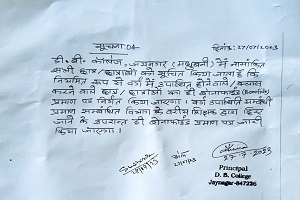 सूचना 04 दिनांक: 27/07/2023
डी. बी. कॉलेज, जयनगर (मधुबनी) में नामांकित
सभी छात्र/छात्राओं को सूचित किया जाता है कि
नियमित रूप से वर्ग में उपस्थित होने वाले/
करने वाले छात्र/छात्राओं को ही बोनाफाइड (Bonafide)
प्रमाण पत्र निर्गत किया जाएगा। वर्ग उपस्थिति सम्बन्धी
प्रमाण सम्बन्धित विभाग के वरीय शिक्षक द्वारा दिए
जाने के उपरान्त ही बोनाफाइड प्रमाण पत्र जारी
किया जाएगा।
27.7.2023
Principal
D. B. College
Jaynagar-847226